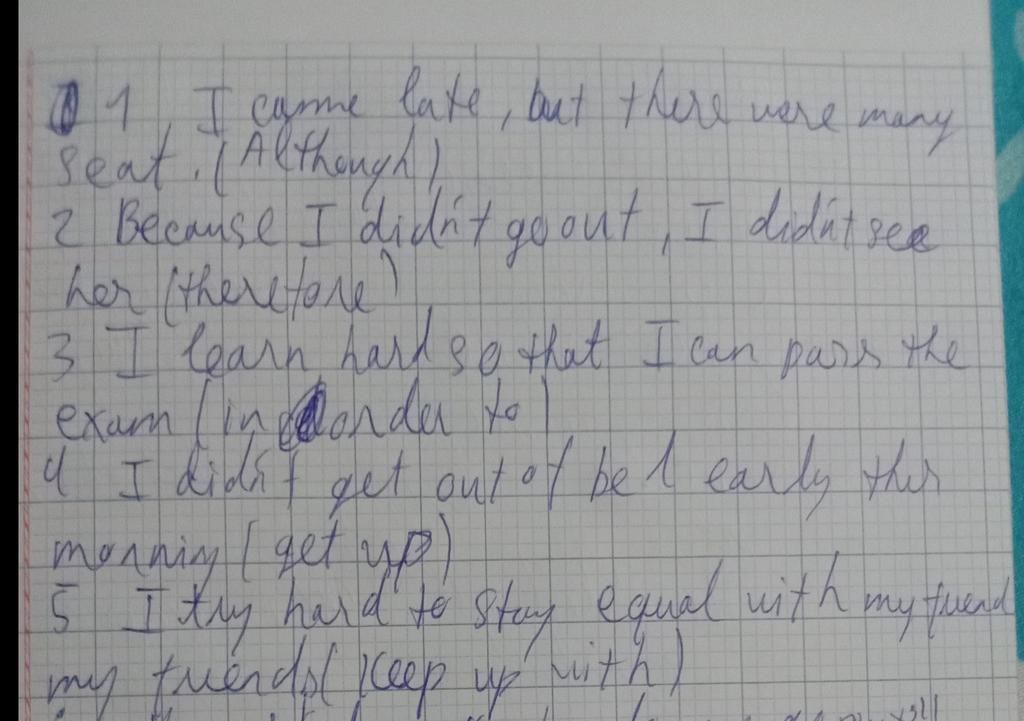 1, I came late, but there were many
seat. (Although)
2 Because I didn't go out, I didn't see
her (therefore)
3 I learn hard so that I can pass the
exam (in order to)
4 I didn't get out of bed early this
morning (get up)
5 I try hard to stay equal with my friend
my friends (keep up with)